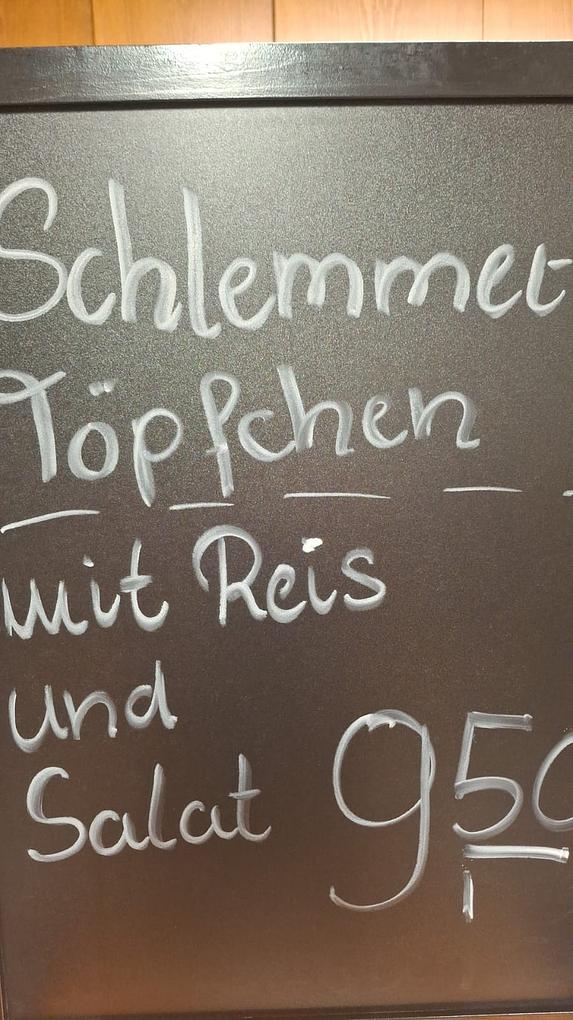 Schlemmer
Töpfchen
mit Reis
und
Salat 9,50